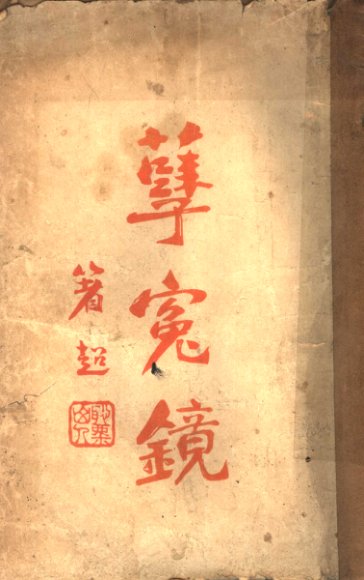 孽寃鏡
箸超